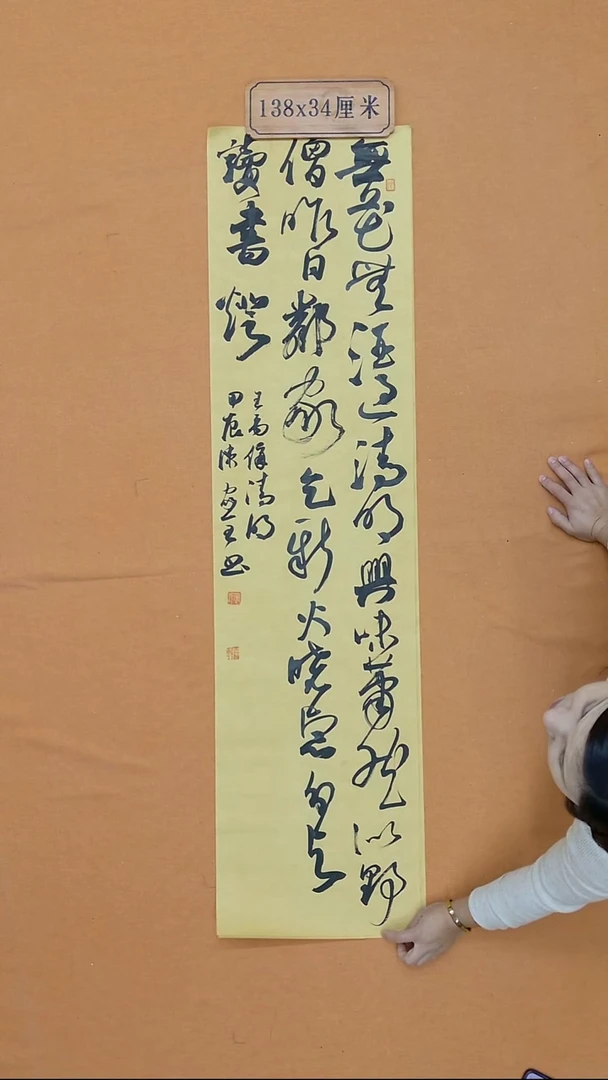 138x34厘米
無花無酒過清明興味蕭然似野
僧昨日鄰家乞新火曉窗分与
讀書燈
王禹偁清明
甲辰陳
书